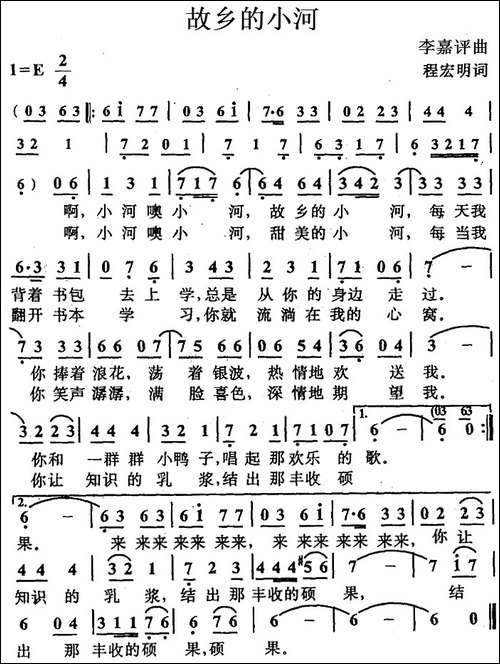 故乡的小河
李嘉评曲
1=E 2/4 程宏明词
(03 63 ‖: 6i 77 | 03 63 | 7·6 33 | 02 23 | 44 4 |
32 1 | 72 01 | 7 1 7 | 6 3217 |
6) 06 | 1 3 1 | 717 6 | 64 64 | 342 3 | 33 33 |
啊, 小河噢小 河, 故乡的小 河, 每天我
啊, 小河噢小 河, 甜美的小 河, 每当我
6·3 31 | 0 7 6 | 3 43 | 2 31 | 71 06 | 7 - |
背着 书包 去上 学,总是 从你的 身边 走 过。
翻开 书本 学 习,你就 流淌在我的 心 窝。
73 33 | 66 06 | 75 66 | 54 54 | 06 43 | 3 - |
你捧着 浪花, 荡 着银波, 热情地欢 送 我。
你笑声 潺潺, 满 脸喜色, 深情地期 望 我。
32 23 | 31 44 4 | 32 1 | 7 2 01 | 7 02 | 6 - | 6 0 :‖
1. (03 63
你和 一群群 小鸭子,唱起 那欢乐 的 歌。
你让 知识的 乳 浆,结出 那丰收 硕
2.
6 - | 63 63 | 6i 77 | 03 63 | 6i 77 | 03 63 | 7·6 33 | 02 23 |
果。 来 来来来 来来, 来 来来 来来 来来, 你让
44 4 | 32 1 | 72 01 | 444 #56 | 7 - | 7 i7 |
知识 的 乳 浆, 结出 那丰收的硕 果, 结
6 04 | 311 76 | 06 76 | 6 - | 6 0 ‖
出 那 丰收的硕 果,硕 果。